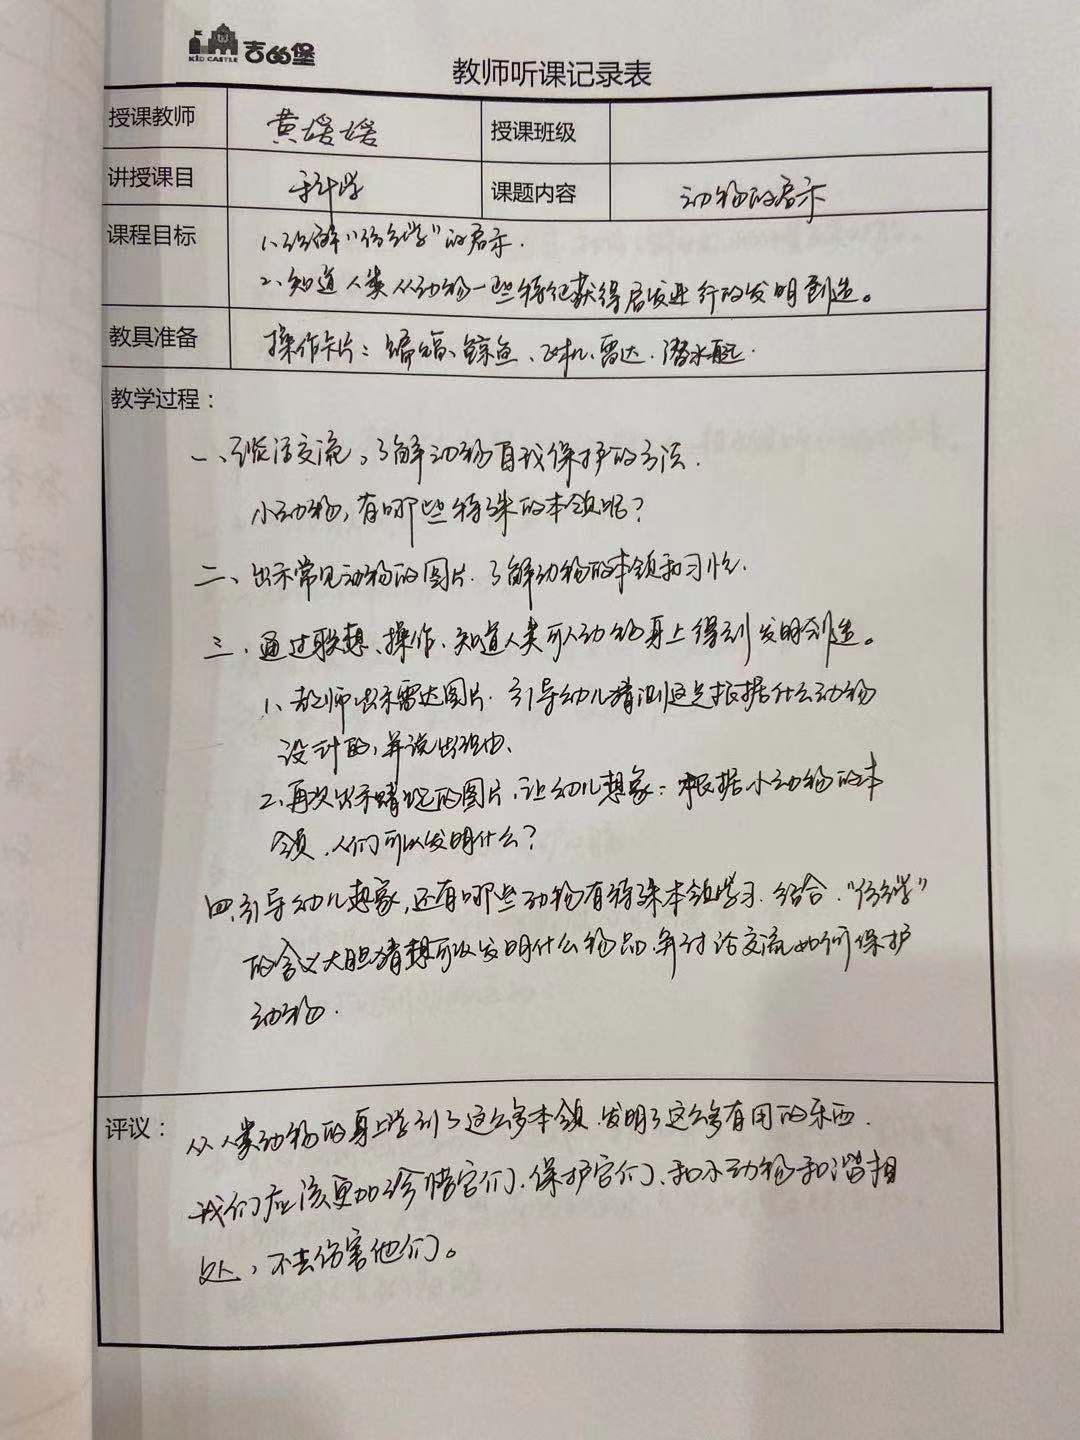 KID CASTLE 吉的堡
教师听课记录表
授课教师 黄媛媛 授课班级
讲授课目 科学 课题内容 动物的启示
课程目标 1、理解“仿生学”的启示.
2、知道人类从动物一些特征获得启发进行的发明创造。
教具准备 操作卡片：蝙蝠、鲸鱼、飞机、雷达、潜水艇.
教学过程：
一、谈话交流,了解动物自我保护的方法.
小动物,有哪些特殊的本领呢?
二、出示常见动物的图片.了解动物的本领和习性.
三、通过联想、操作、知道人类可从动物身上得到发明创造。
1、教师出示雷达图片.引导幼儿猜测这是根据什么动物
设计的,并说出理由、
2、再次出示蜻蜓的图片,让幼儿想象：根据小动物的本
领,人们可以发明什么?
四、引导幼儿想象,还有哪些动物有特殊本领学习.结合.“仿生学”
的含义大胆猜想可以发明什么物品.并讨论交流如何保护
动物.
评议： 从人类动物的身上学到了这么多本领.发明了这么多有用的东西.
我们应该更加珍惜它们.保护它们、和小动物和谐相
处,不去伤害他们。